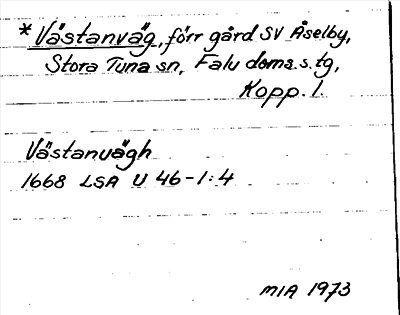 * Västanväg, förr gård SV Åselby,
Stora Tuna sn, Falu doms.s.tg,
Kopp. l.
Västanvägh
1668 LSA U 46-1:4
MIA 1973